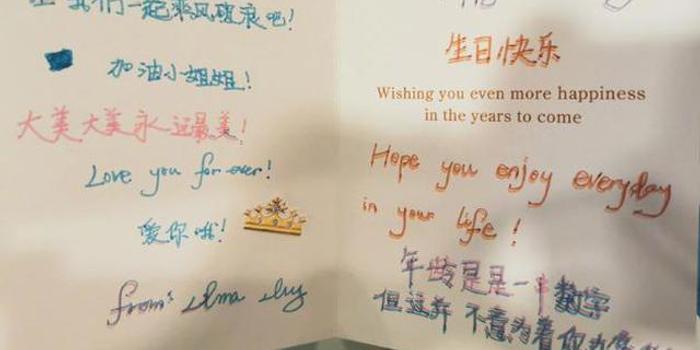 我们一起乘风破浪吧!
加油小姐姐!
大美大美永远最美!
Love you for ever!
爱你哦!
from:
生日快乐
Wishing you even more happiness
in the years to come
Hope you enjoy everyday
in your life!
年龄是是一串数字
但这并不意味着你